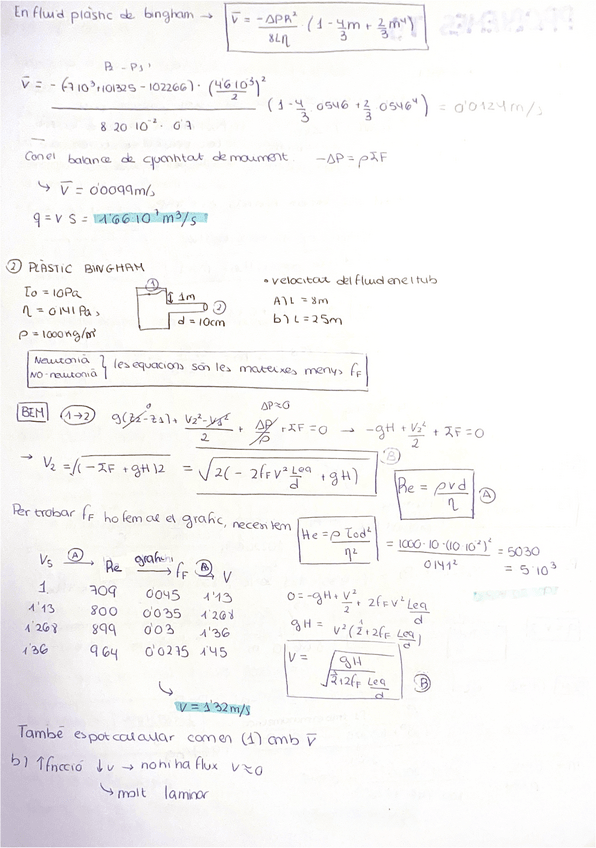 En fluid plàstic de bingham → V̄ = -ΔPR² / 8Lη · (1 - 4/3 m + 2/3 m⁴)
V̄ = -(-7 10³ + 101325 - 102266) · (4'6 10³ / 2)² / 8 20 10⁻² · 0'7 (1 - 4/3 0546 + 2/3 0'546⁴) = 0'0124 m/s
Con el balance de quantitat de moviment. -ΔP = ρΣF
↳ V̄ = 0'0099 m/s
q = v S = 1'66 10⁷ m³/s
② PLÀSTIC BINGHAM
τo = 10 Pa
η = 0141 Pa s
ρ = 1000 kg/m³
① 1m ② d = 10cm
• velocitat del fluid en el tub
A) L = 8m
b) L = 25m
Newtonià
NO-newtonià } les equacions són les mateixes menys fF
BEM ①→② g(z2 - z1) + V2² - V1² / 2 + ΔP/ρ + ΣF = 0 → -gH + V2²/2 + ΣF = 0
ΔP≈0
→ V2 = √(-ΣF + gH)2 = √2(-2fF V² Leq/d + gH) Ⓑ
Re = ρvd / η Ⓐ
Per trobar fF ho fem al el gràfic, necessitem He = ρ τo d² / η² = 1000·10·(10 10²)² / 0141² = 5030
= 5·10³
Vs Ⓐ→ Re gràfic→ fF Ⓑ→ V
1. 709 0045 1'13
1'13 800 0'035 1'268
1'268 899 0'03 1'36
1'36 964 0'0275 1'45
↳ V = 1'32 m/s
0 = -gH + V²/2 + 2fF V² Leq/d
gH = V²(1/2 + 2fF Leq/d)
V = √gH / √1/2 + 2fF Leq/d Ⓑ
També es pot calcular com en (1) amb V̄
b) ↑fricció ↓v → no hi ha flux V≈0
↳ molt laminar